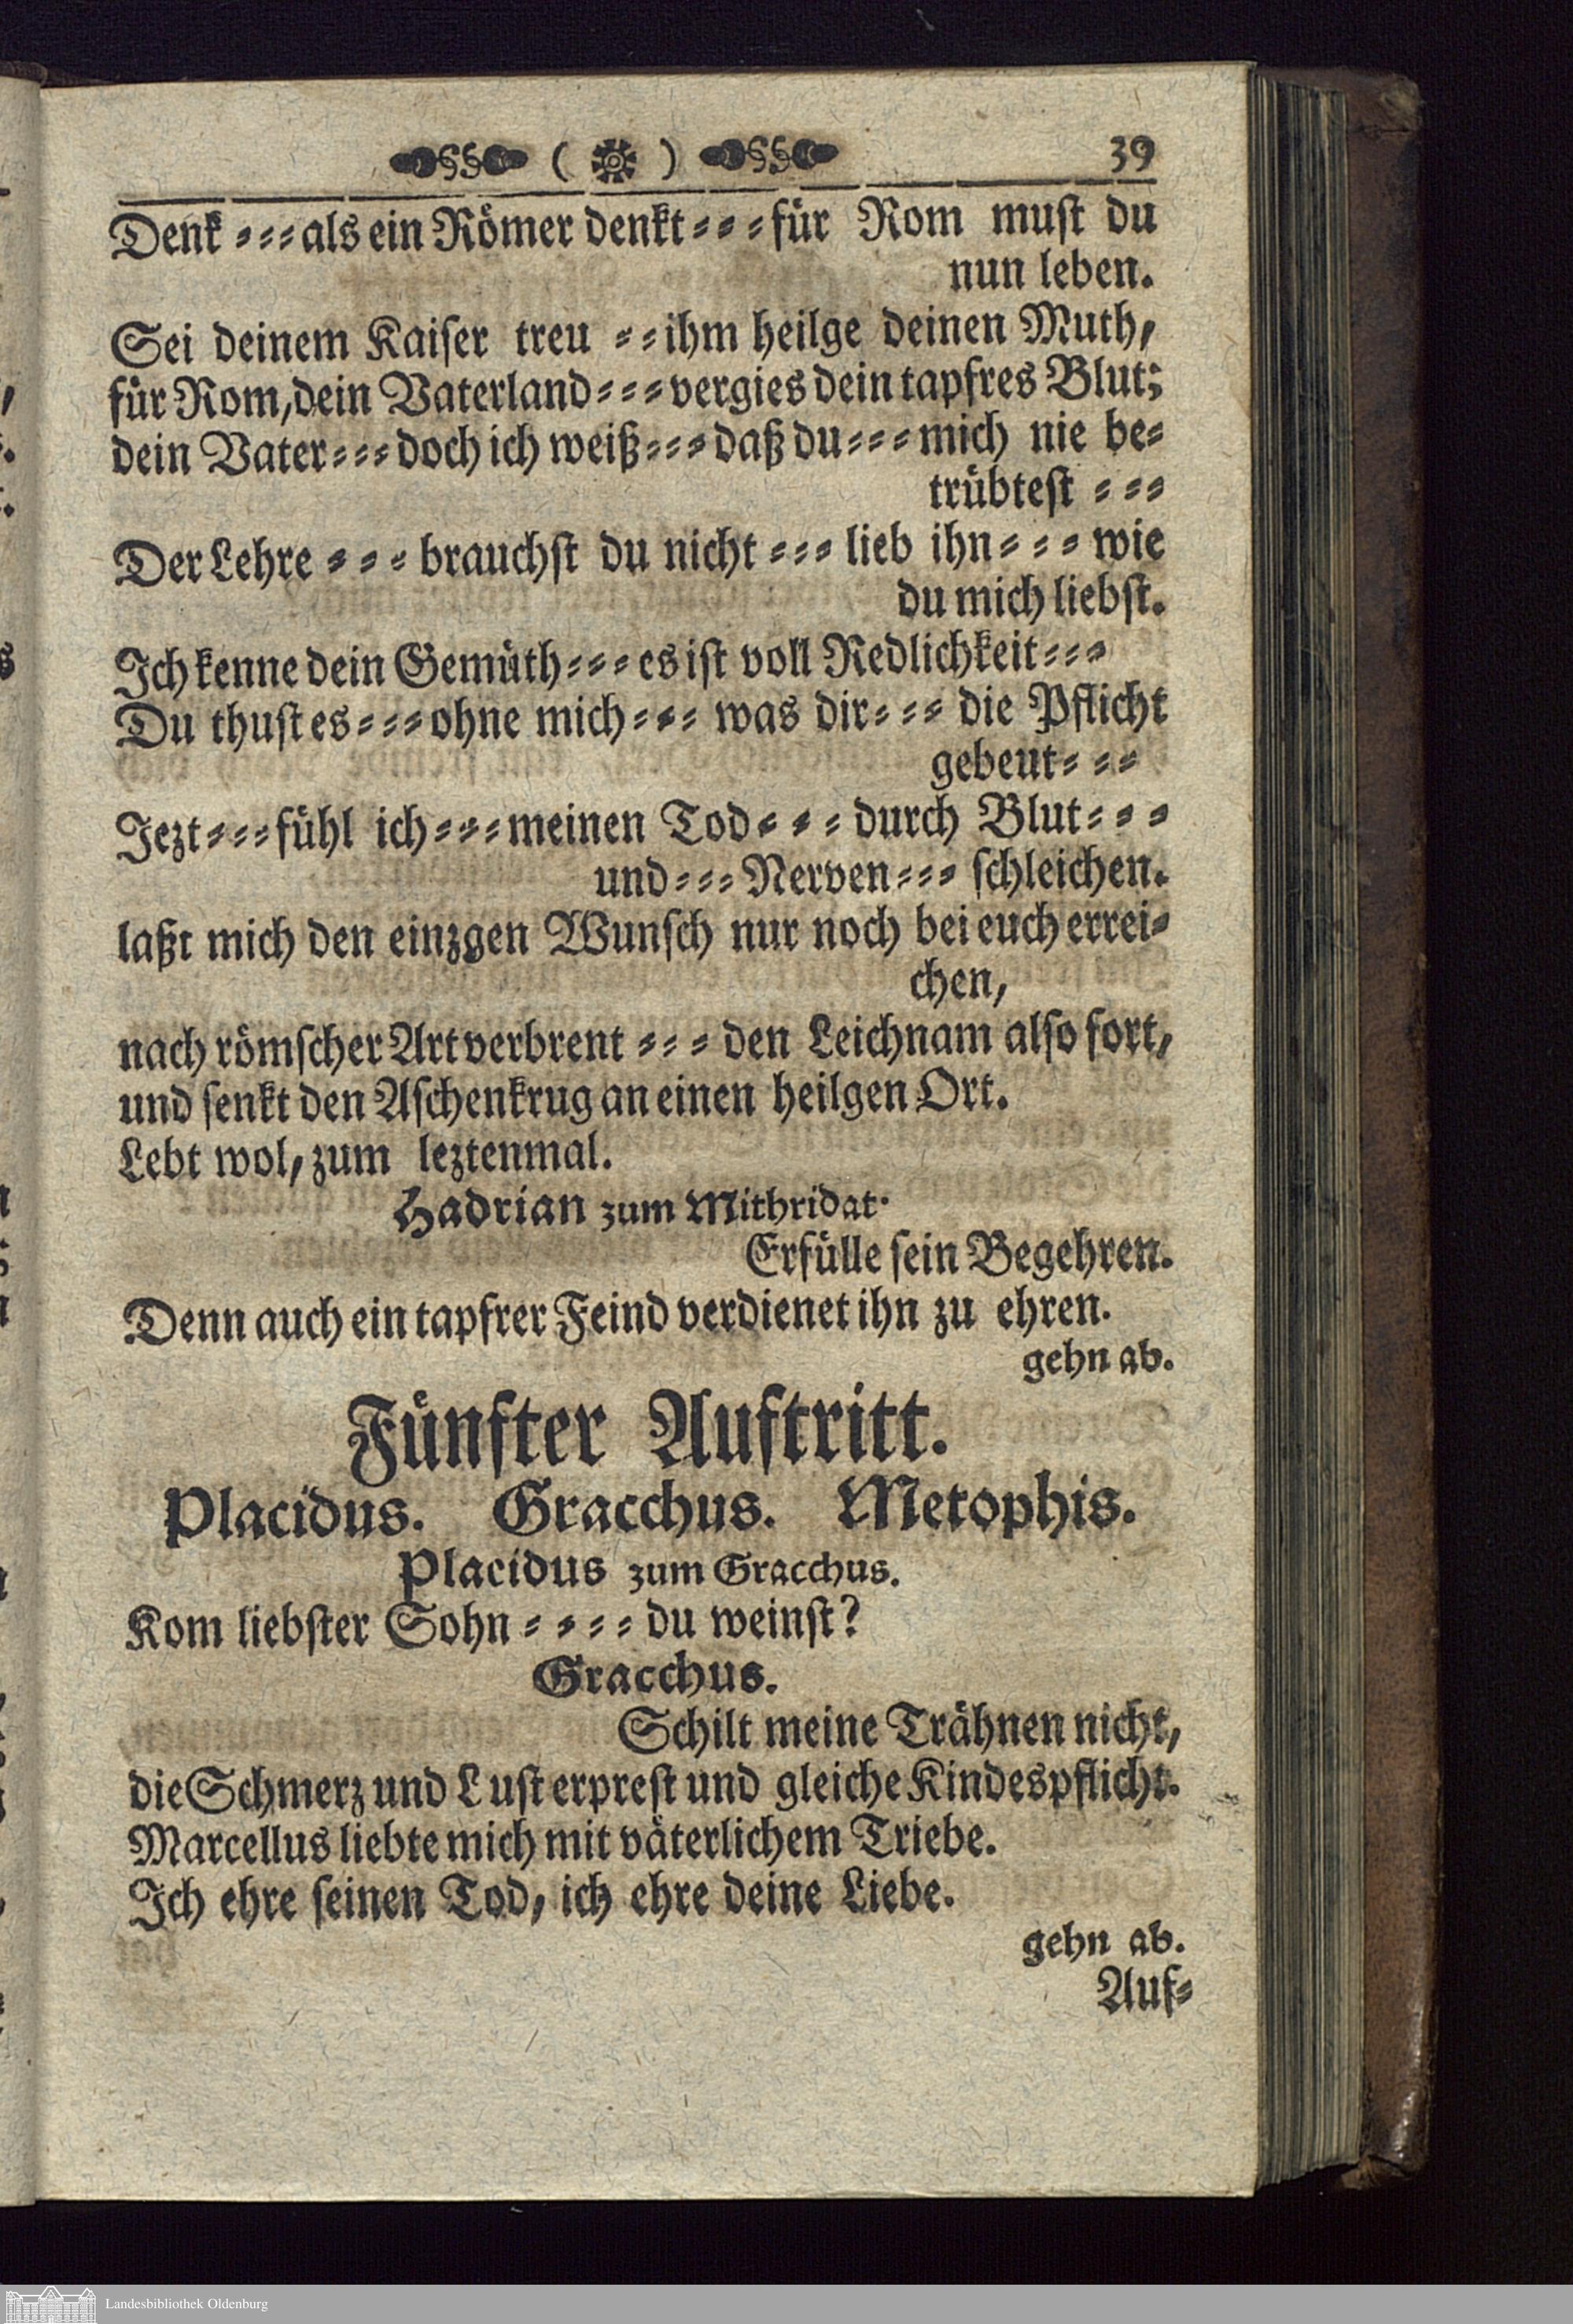 ( ) 39
Denk ⸗⸗⸗ als ein Römer denkt ⸗⸗⸗ für Rom must du
nun leben.
Sei deinem Kaiser treu ⸗⸗ ihm heilge deinen Muth,
für Rom, dein Vaterland ⸗⸗⸗ vergies dein tapfres Blut;
dein Vater ⸗⸗⸗ doch ich weiß ⸗⸗⸗ daß du ⸗⸗⸗ mich nie be⸗
trübtest ⸗⸗⸗
Der Lehre ⸗⸗⸗ brauchst du nicht ⸗⸗⸗ lieb ihn ⸗⸗⸗ wie
du mich liebst.
Ich kenne dein Gemüth ⸗⸗⸗ es ist voll Redlichkeit ⸗⸗⸗
Du thust es ⸗⸗⸗ ohne mich ⸗⸗⸗ was dir ⸗⸗⸗ die Pflicht
gebeut ⸗⸗⸗
Jezt ⸗⸗⸗ fühl ich ⸗⸗⸗ meinen Tod ⸗⸗⸗ durch Blut ⸗⸗⸗
und ⸗⸗⸗ Nerven ⸗⸗⸗ schleichen.
laßt mich den einzgen Wunsch nur noch bei euch errei⸗
chen,
nach römscher Art verbrent ⸗⸗⸗ den Leichnam also fort,
und senkt den Aschenkrug an einen heilgen Ort.
Lebt wol, zum leztenmal.
Hadrian zum Mithridat.
Erfülle sein Begehren.
Denn auch ein tapfrer Feind verdienet ihn zu ehren.
gehn ab.
Fünfter Auftritt.
Placidus. Gracchus. Metophis.
Placidus zum Gracchus.
Kom liebster Sohn ⸗⸗⸗⸗ du weinst?
Gracchus.
Schilt meine Trähnen nicht,
die Schmerz und Lust erprest und gleiche Kindespflicht.
Marcellus liebte mich mit väterlichem Triebe.
Ich ehre seinen Tod, ich ehre deine Liebe.
gehn ab.
Auf⸗
Landesbibliothek Oldenburg